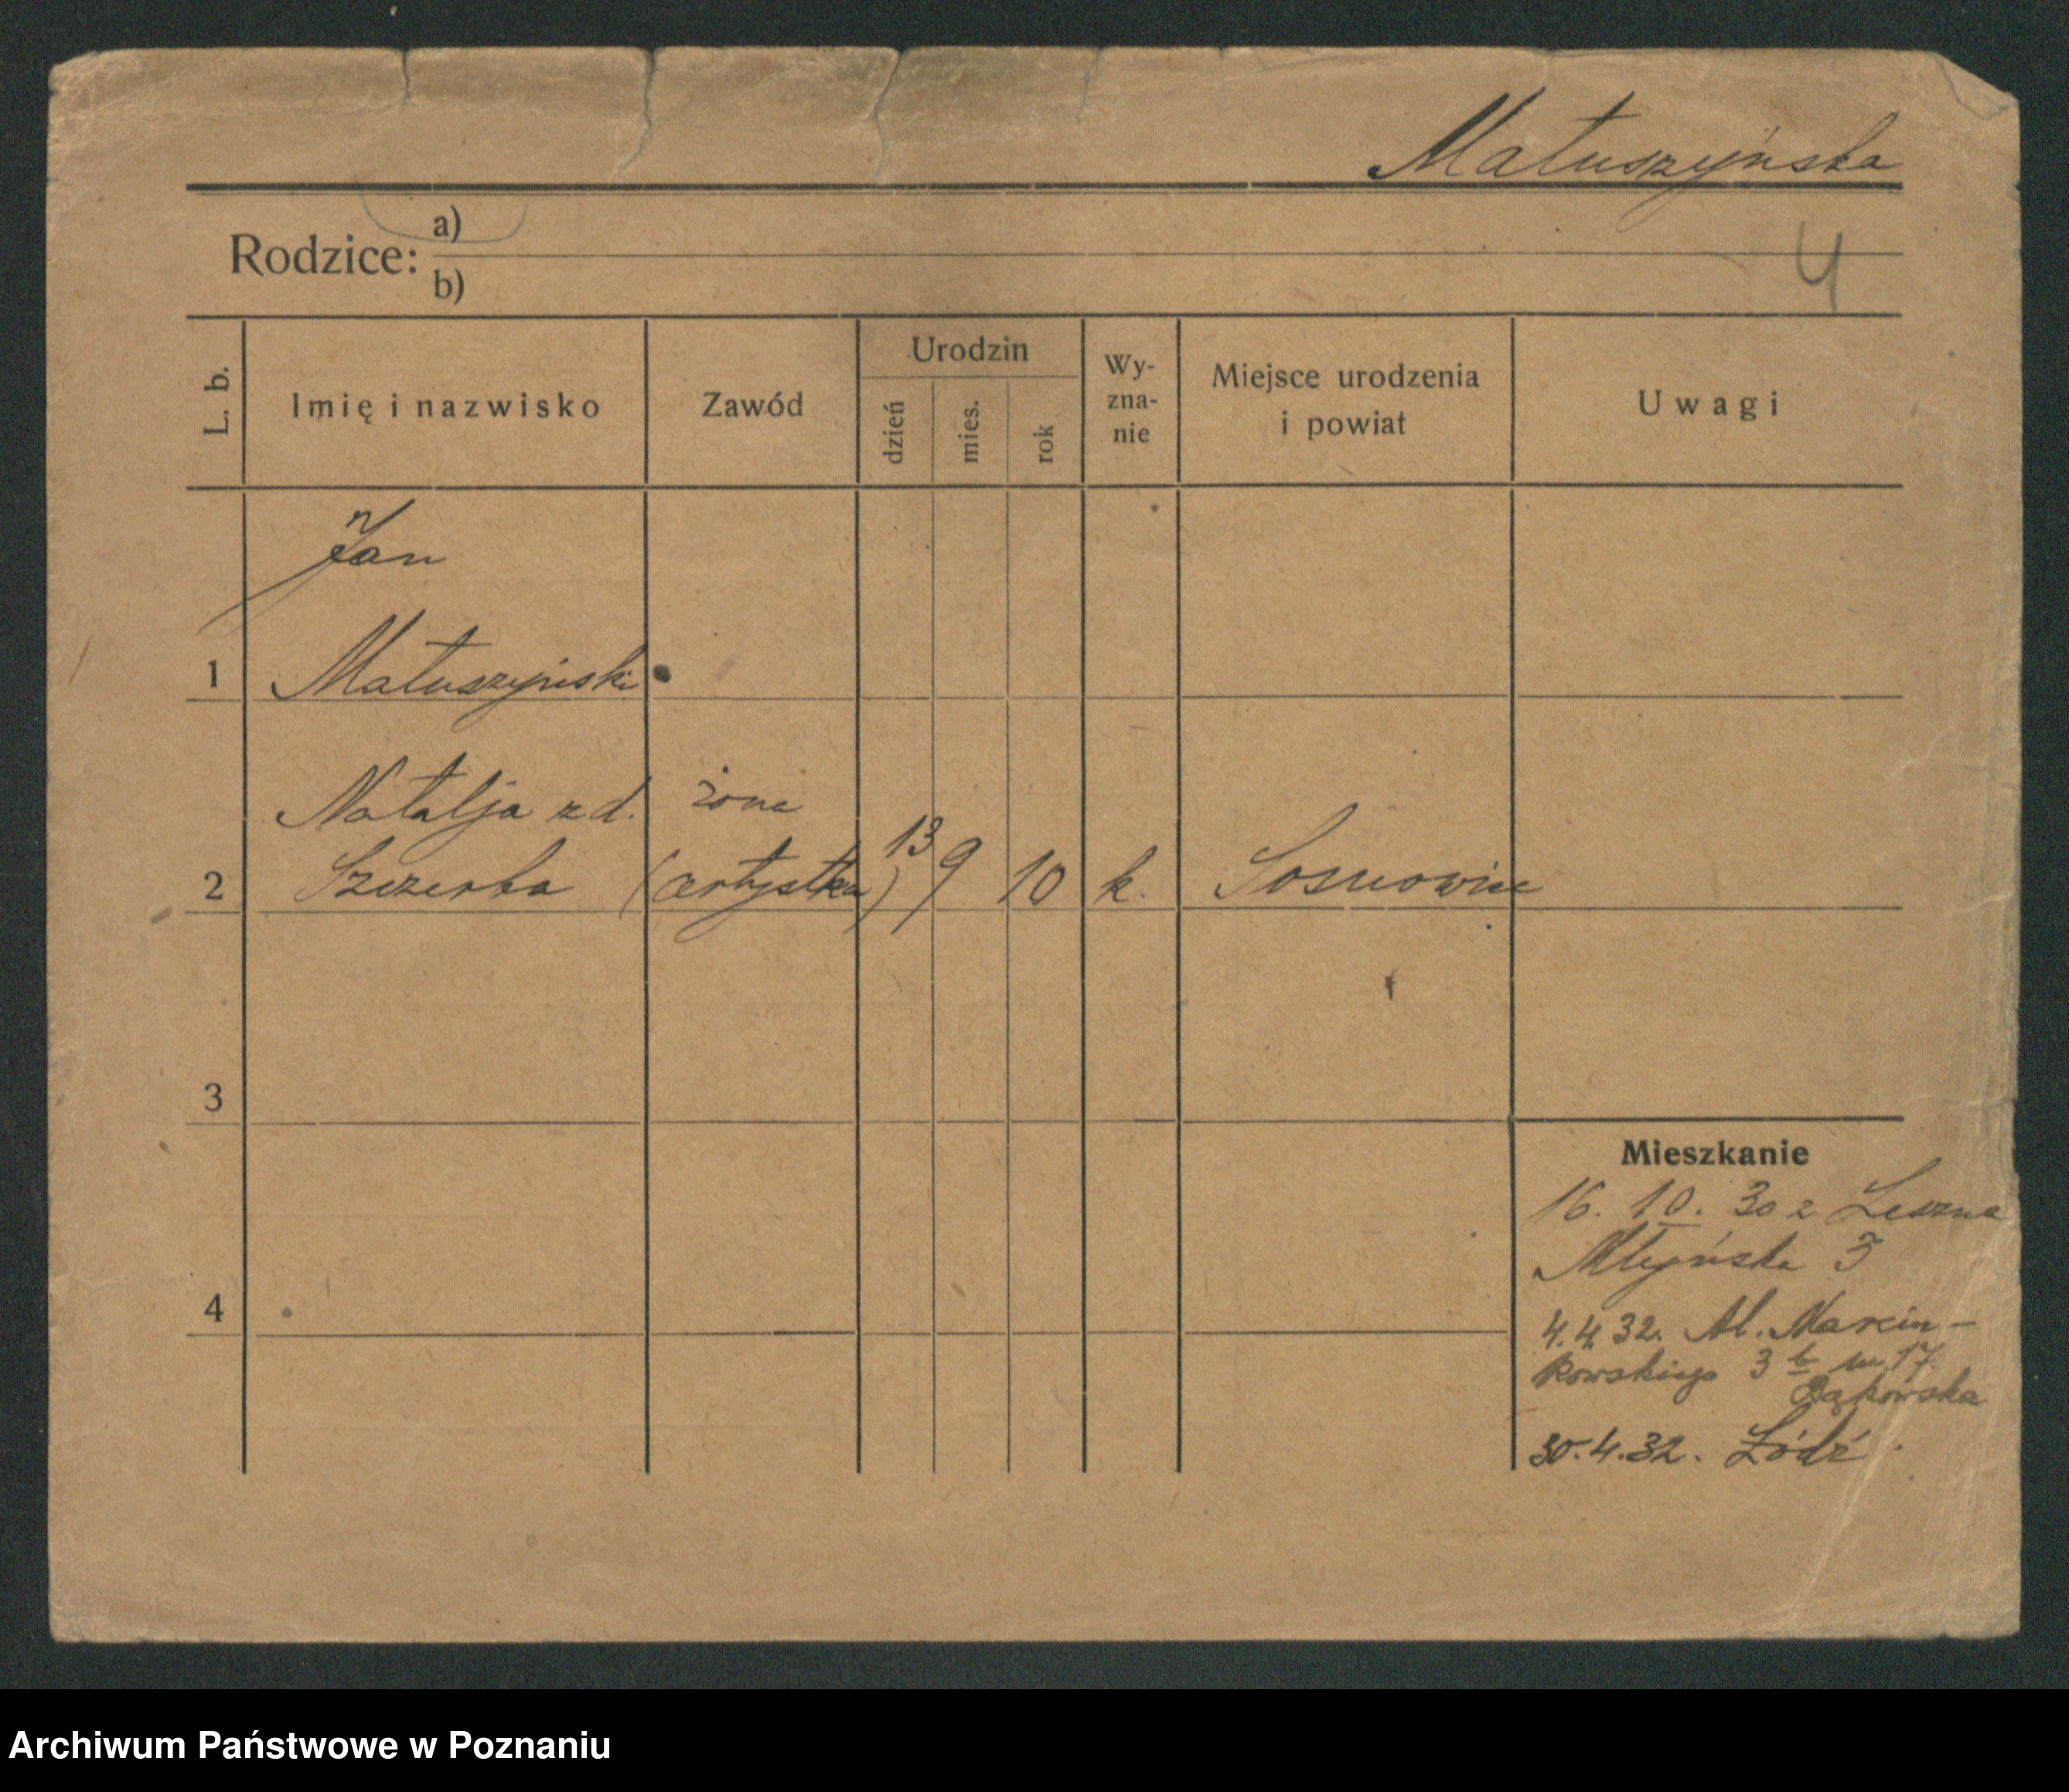 Matuszyńska
Rodzice: a)
b)
4
L. b.
Imię i nazwisko
Zawód
Urodzin
dzień
mies.
rok
Wy-
zna-
nie
Miejsce urodzenia
i powiat
Uwagi
Jan
1 Matuszyński
Natalja z d. żona
2 Szczerba (artystka) 13 9 10 k. Sosnowice
3
4
Mieszkanie
16. 10. 30 z Leszna
Młyńska 3
4.4.32. Al. Marcin-
kowskiego 3 b m 17
Bąkowska
30.4.32. Łódź.
Archiwum Państwowe w Poznaniu